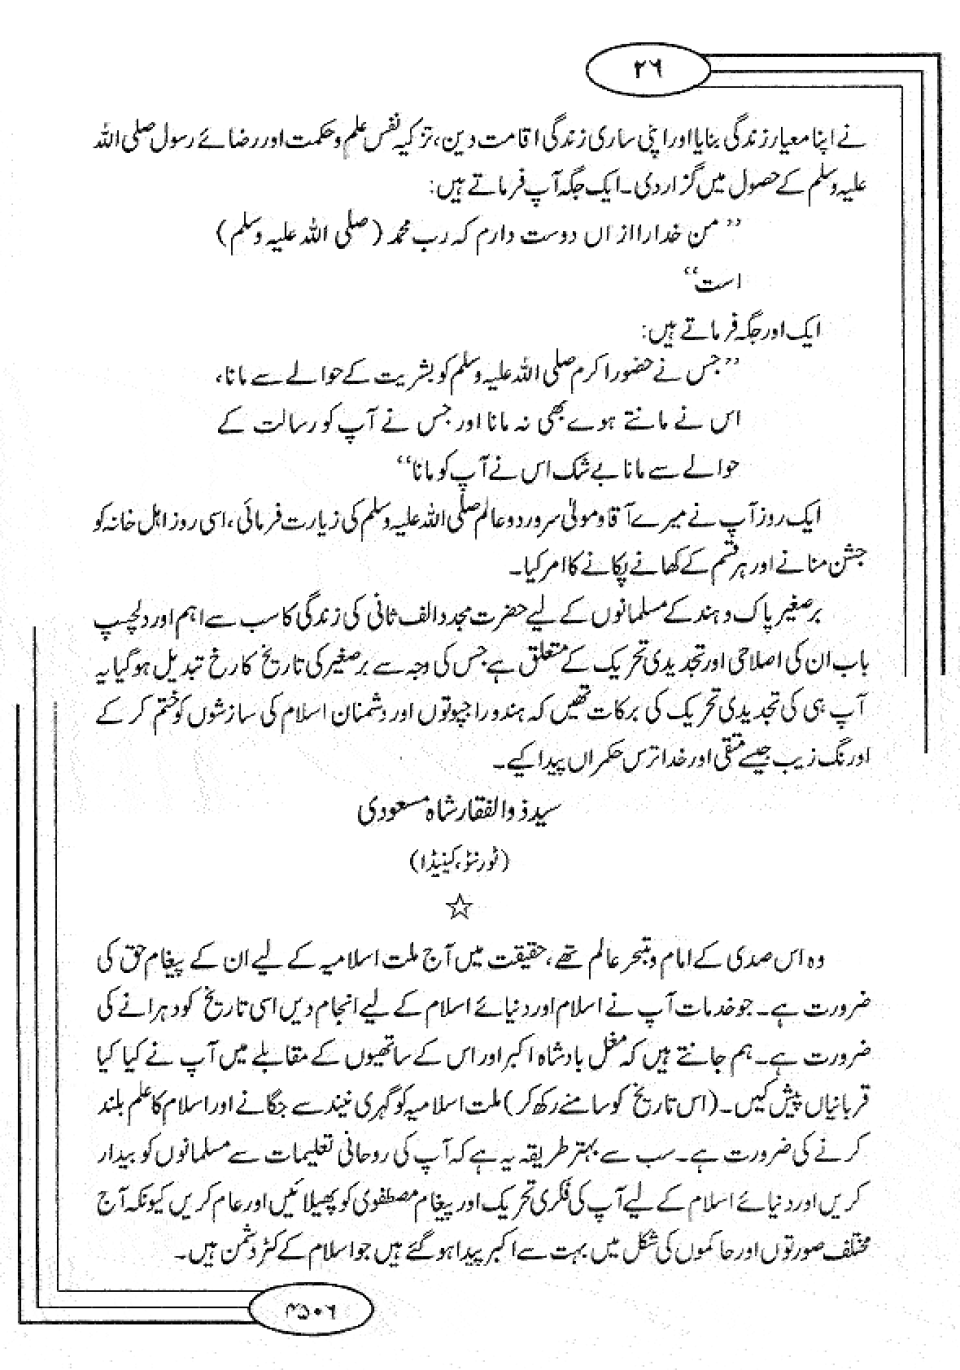 ۲۶
نے اپنا معیار زندگی بنایا اور اپنی ساری زندگی اقامت دین، تزکیہ نفس علم و حکمت اور رضائے رسول صلی اللہ
علیہ وسلم کے حصول میں گزار دی۔ ایک جگہ آپ فرماتے ہیں:
”من خدارا از آں دوست دارم کہ رب محمد (صلی اللہ علیہ وسلم)
است“
ایک اور جگہ فرماتے ہیں:
”جس نے حضور اکرم صلی اللہ علیہ وسلم کو بشریت کے حوالے سے مانا،
اس نے مانتے ہوے بھی نہ مانا اور جس نے آپ کو رسالت کے
حوالے سے مانا بے شک اس نے آپ کو مانا“
ایک روز آپ نے میرے آقا و مولیٰ سرور دو عالم صلی اللہ علیہ وسلم کی زیارت فرمائی، اسی روز اہل خانہ کو
جشن منانے اور ہر قسم کے کھانے پکانے کا امر کیا۔
برصغیر پاک و ہند کے مسلمانوں کے لیے حضرت مجدد الف ثانی کی زندگی کا سب سے اہم اور دلچسپ
باب ان کی اصلاحی اور تجدیدی تحریک کے متعلق ہے جس کی وجہ سے برصغیر کی تاریخ کا رخ تبدیل ہوگیا یہ
آپ ہی کی تجدیدی تحریک کی برکات تھیں کہ ہندو راجپوتوں اور دشمنان اسلام کی سازشوں کو ختم کر کے
اورنگ زیب جیسے متقی اور خدا ترس حکمراں پیدا کیے۔
سید ذوالفقار شاہ مسعودی
(ٹورنٹو، کینیڈا)
☆
وہ اس صدی کے امام و متبحر عالم تھے، حقیقت میں آج ملت اسلامیہ کے لیے ان کے پیغام حق کی
ضرورت ہے۔ جو خدمات آپ نے اسلام اور دنیائے اسلام کے لیے انجام دیں اسی تاریخ کو دہرانے کی
ضرورت ہے۔ ہم جانتے ہیں کہ مغل بادشاہ اکبر اور اس کے ساتھیوں کے مقابلے میں آپ نے کیا کیا
قربانیاں پیش کیں۔ (اس تاریخ کو سامنے رکھ کر) ملت اسلامیہ کو گہری نیند سے جگانے اور اسلام کا علم بلند
کرنے کی ضرورت ہے۔ سب سے بہتر طریقہ یہ ہے کہ آپ کی روحانی تعلیمات سے مسلمانوں کو بیدار
کریں اور دنیائے اسلام کے لیے آپ کی فکری تحریک اور پیغام مصطفوی کو پھیلائیں اور عام کریں کیونکہ آج
مختلف صورتوں اور حاکموں کی شکل میں بہت سے اکبر پیدا ہوگئے ہیں جو اسلام کے کٹر دشمن ہیں۔
۴۵۰۶